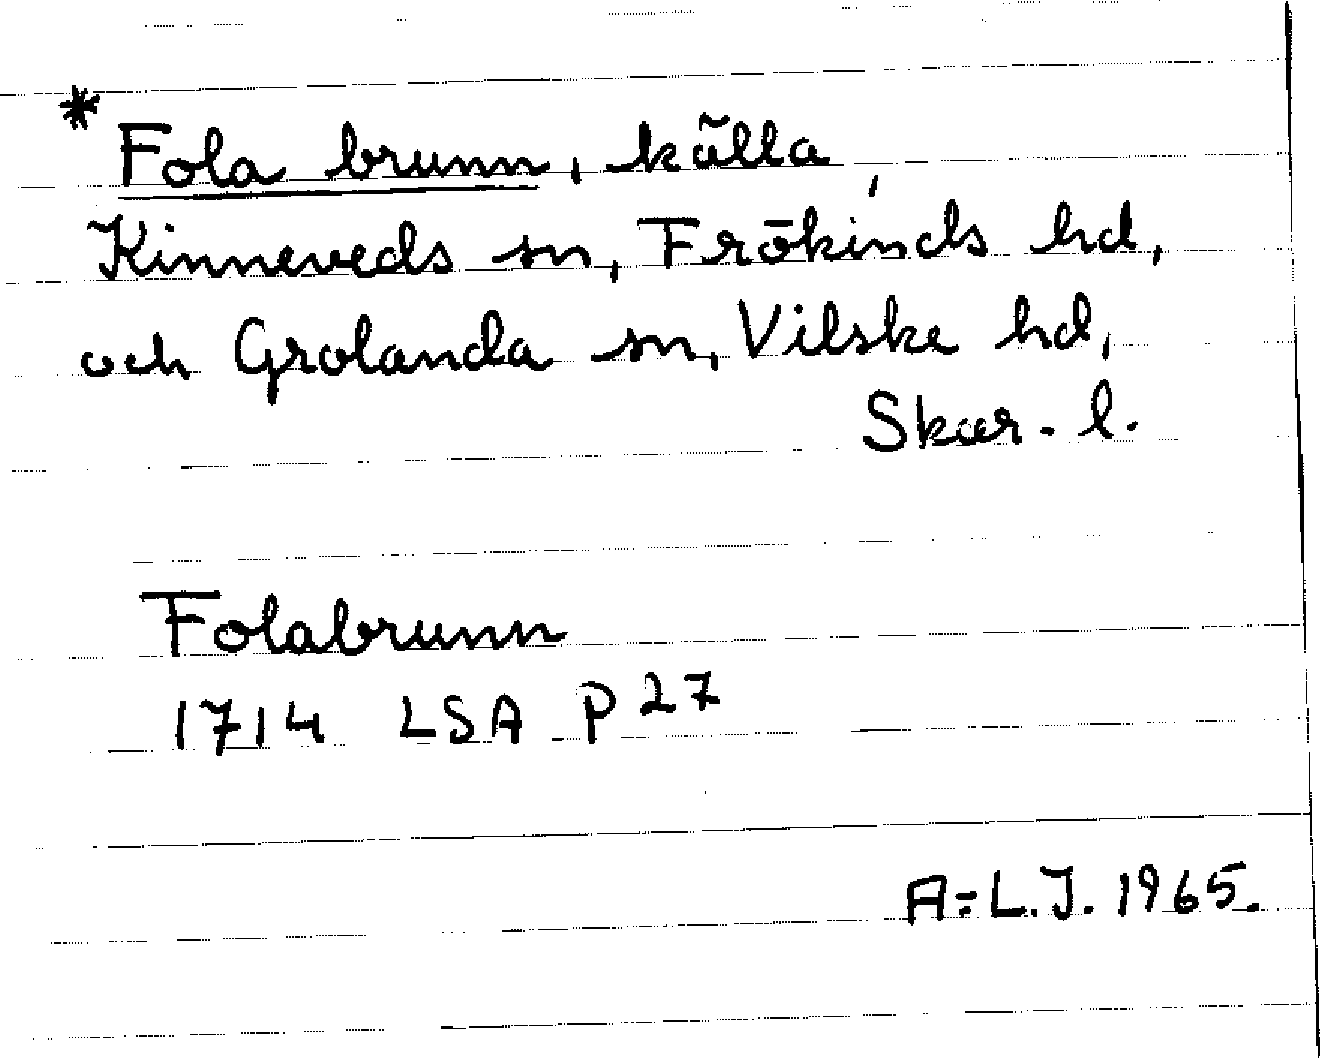 * Fola brunn, källa,
Kinneveds sn, Frökinds hd,
och Grolanda sn, Vilske hd,
Skar. l.
Folabrunn
1714 LSA P 27
A-L.J. 1965.